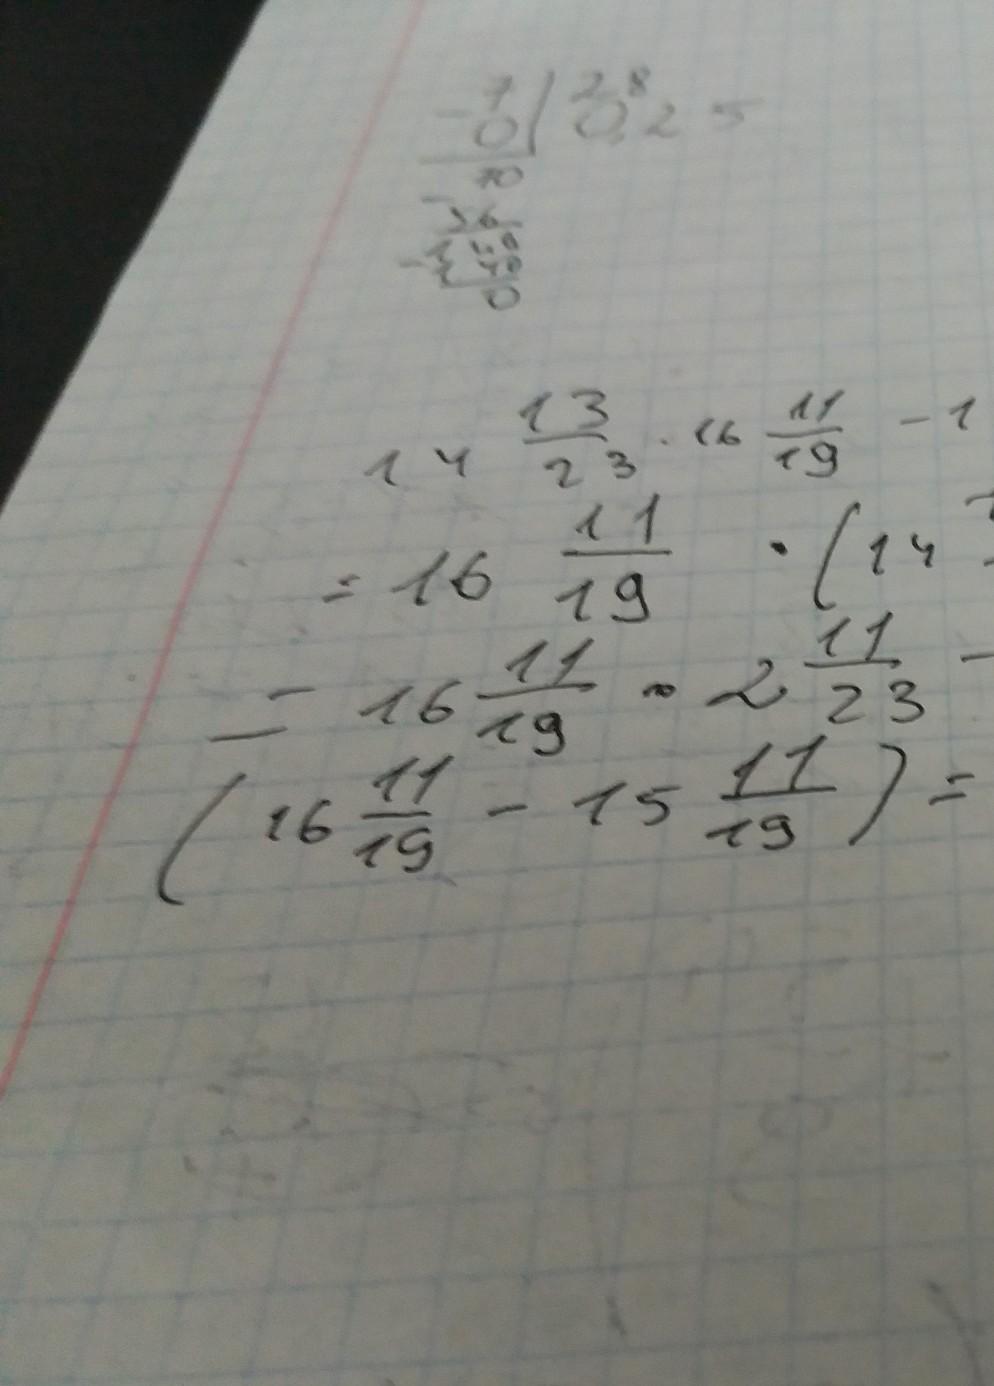 7 | 28
- 0 | 0,25
70
- 56
0
14 13/23 · 16 11/19 - 1
= 16 11/19 · (14
= 16 11/19 · 2 11/23 -
(16 11/19 - 15 11/19) =